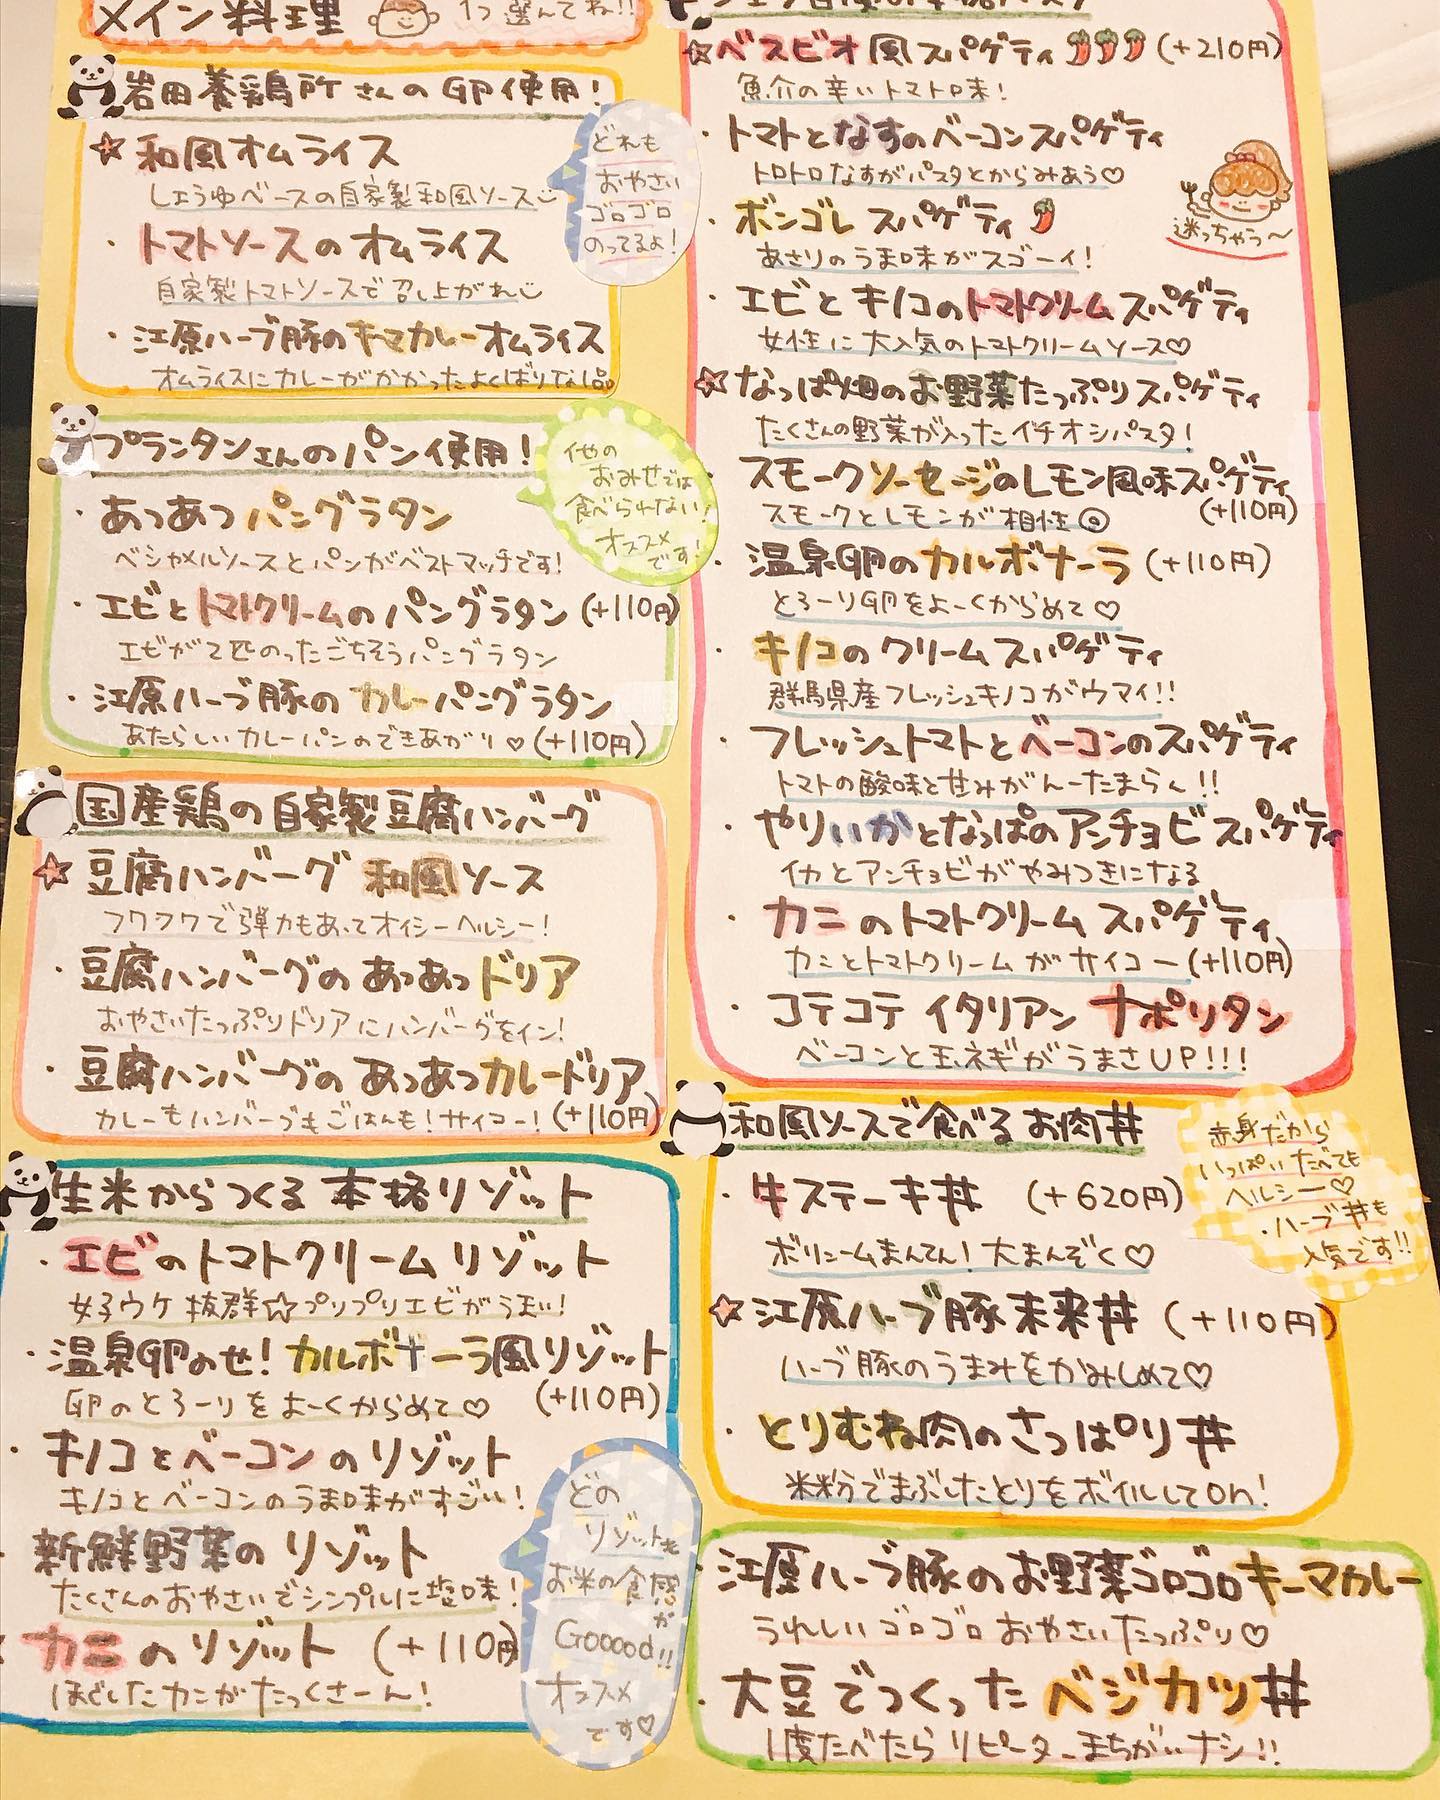 メイン料理 1つ選んでね!!
岩田養鶏所さんの卵使用!
☆和風オムライス
しょうゆベースの自家製和風ソース
・トマトソースのオムライス
自家製トマトソースで召し上がれ
・江原ハーブ豚のキーマカレーオムライス
オムライスにカレーがかかったよくばりな1品
どれも
おやさい
ゴロゴロ
のってるよ!
プランタンさんのパン使用!
・あつあつパングラタン
ベシャメルソースとパンがベストマッチです!
・エビとトマトクリームのパングラタン(+110円)
エビが2匹のったごちそうパングラタン
・江原ハーブ豚のカレーパングラタン
あたらしいカレーパンのできあがり♡(+110円)
他の
おみせでは
食べられない!
オススメ
です!
国産鶏の自家製豆腐ハンバーグ
☆豆腐ハンバーグ和風ソース
フワフワで弾力もあってオイシーヘルシー!
・豆腐ハンバーグのあつあつドリア
おやさいたっぷりドリアにハンバーグをイン!
・豆腐ハンバーグのあつあつカレードリア
カレーもハンバーグもごはんも!サイコー!(+110円)
生米からつくる本格リゾット
・エビのトマトクリームリゾット
女子ウケ抜群☆プリプリエビがうまい!
・温泉卵のせ!カルボナーラ風リゾット
卵のとろーりをよーくからめて♡ (+110円)
・キノコとベーコンのリゾット
キノコとベーコンのうま味がすごい!
・新鮮野菜のリゾット
たくさんのおやさいでシンプルに塩味!
カニのリゾット (+110円)
ほぐしたカニがたっくさーん!
どの
リゾットも
お米の食感
が
Gooood!!
オススメ
です♡
☆ベスビオ風スパゲティ(+210円)
魚介の辛いトマト味!
・トマトとなすのベーコンスパゲティ
トロトロなすがパスタとからみあう♡
・ボンゴレスパゲティ
あさりのうま味がスゴーイ!
・エビとキノコのトマトクリームスパゲティ
女性に大人気のトマトクリームソース♡
☆なっぱ畑のお野菜たっぷりスパゲティ
たくさんの野菜が入ったイチオシパスタ!
・スモークソーセージのレモン風味スパゲティ
スモークとレモンが相性◎ (+110円)
・温泉卵のカルボナーラ(+110円)
とろーり卵をよーくからめて♡
・キノコのクリームスパゲティ
群馬県産フレッシュキノコがウマイ!!
・フレッシュトマトとベーコンのスパゲティ
トマトの酸味と甘みがんーたまらん!!
・やりいかとなっぱのアンチョビスパゲティ
イカとアンチョビがやみつきになる
・カニのトマトクリームスパゲティ
カニとトマトクリームがサイコー(+110円)
・コテコテイタリアンナポリタン
ベーコンと玉ネギがうまさUP!!!
迷っちゃう〜
和風ソースで食べるお肉丼
・牛ステーキ丼 (+620円)
ボリュームまんてん!大まんぞく♡
☆江原ハーブ豚未来丼 (+110円)
ハーブ豚のうまみをかみしめて♡
・とりむね肉のさっぱり丼
米粉でまぶしたとりをボイルしてon!
赤身だから
いっぱいたべても
ヘルシー♡
・ハーブ丼も
人気です!!
・江原ハーブ豚のお野菜ゴロゴロキーマカレー
うれしいゴロゴロおやさいたっぷり♡
・大豆でつくったベジカツ丼
1度たべたらリピーターまちがいナシ!!